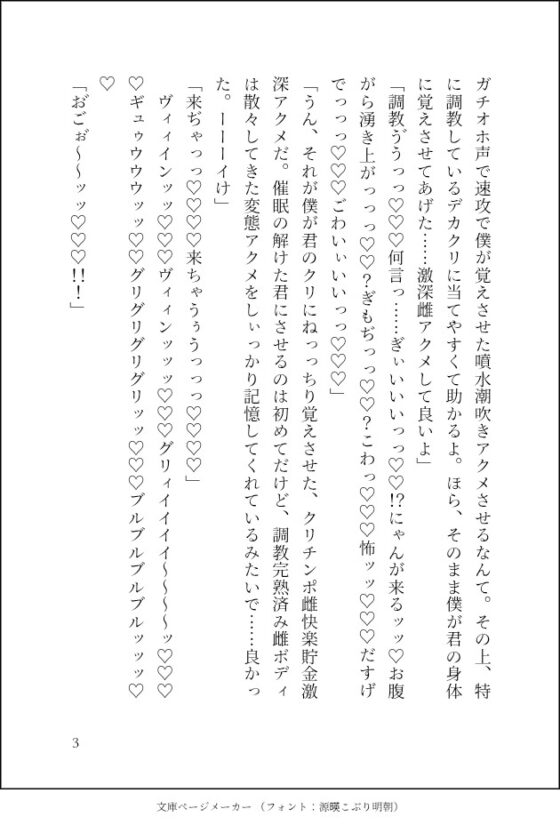 ガチオホ声で速攻で僕が覚えさせた噴水潮吹きアクメさせるなんて。その上、特
に調教しているデカクリに当てやすくて助かるよ。ほら、そのまま僕が君の身体
に覚えさせてあげた……激深雌アクメして良いよ」
「調教ゔうっっ♡♡♡何言っ……ぎぃいいいっっ♡♡!?にゃんが来るッッ♡お腹
がら湧き上がっっっ♡♡?ぎもぢっっ♡♡?こわっ♡♡♡怖ッッ♡♡♡だすげ
でっっっ♡♡♡ごわいぃいいっっ♡♡♡」
「うん、それが僕が君のクリにねっっちり覚えさせた、クリチンポ雌快楽貯金激
深アクメだ。催眠の解けた君にさせるのは初めてだけど、調教完熟済み雌ボディ
は散々してきた変態アクメをしぃっかり記憶してくれているみたいで……良かっ
た。ーーーイけ」
「来ぢゃっっ♡♡♡♡来ちゃうぅうっっっ♡♡♡♡」
ヴィィインッッ♡♡♡ヴィィンッッッ♡♡♡グリィイイイイ～～～～ッ♡♡♡
♡ギュゥウウウッッ♡♡グリグリグリグリッッ♡♡♡ブルブルブルブルッッッ♡
♡
「おごぉ～～ッッ♡♡♡!!！」
3
文庫ページメーカー（フォント：源暎こぶり明朝）